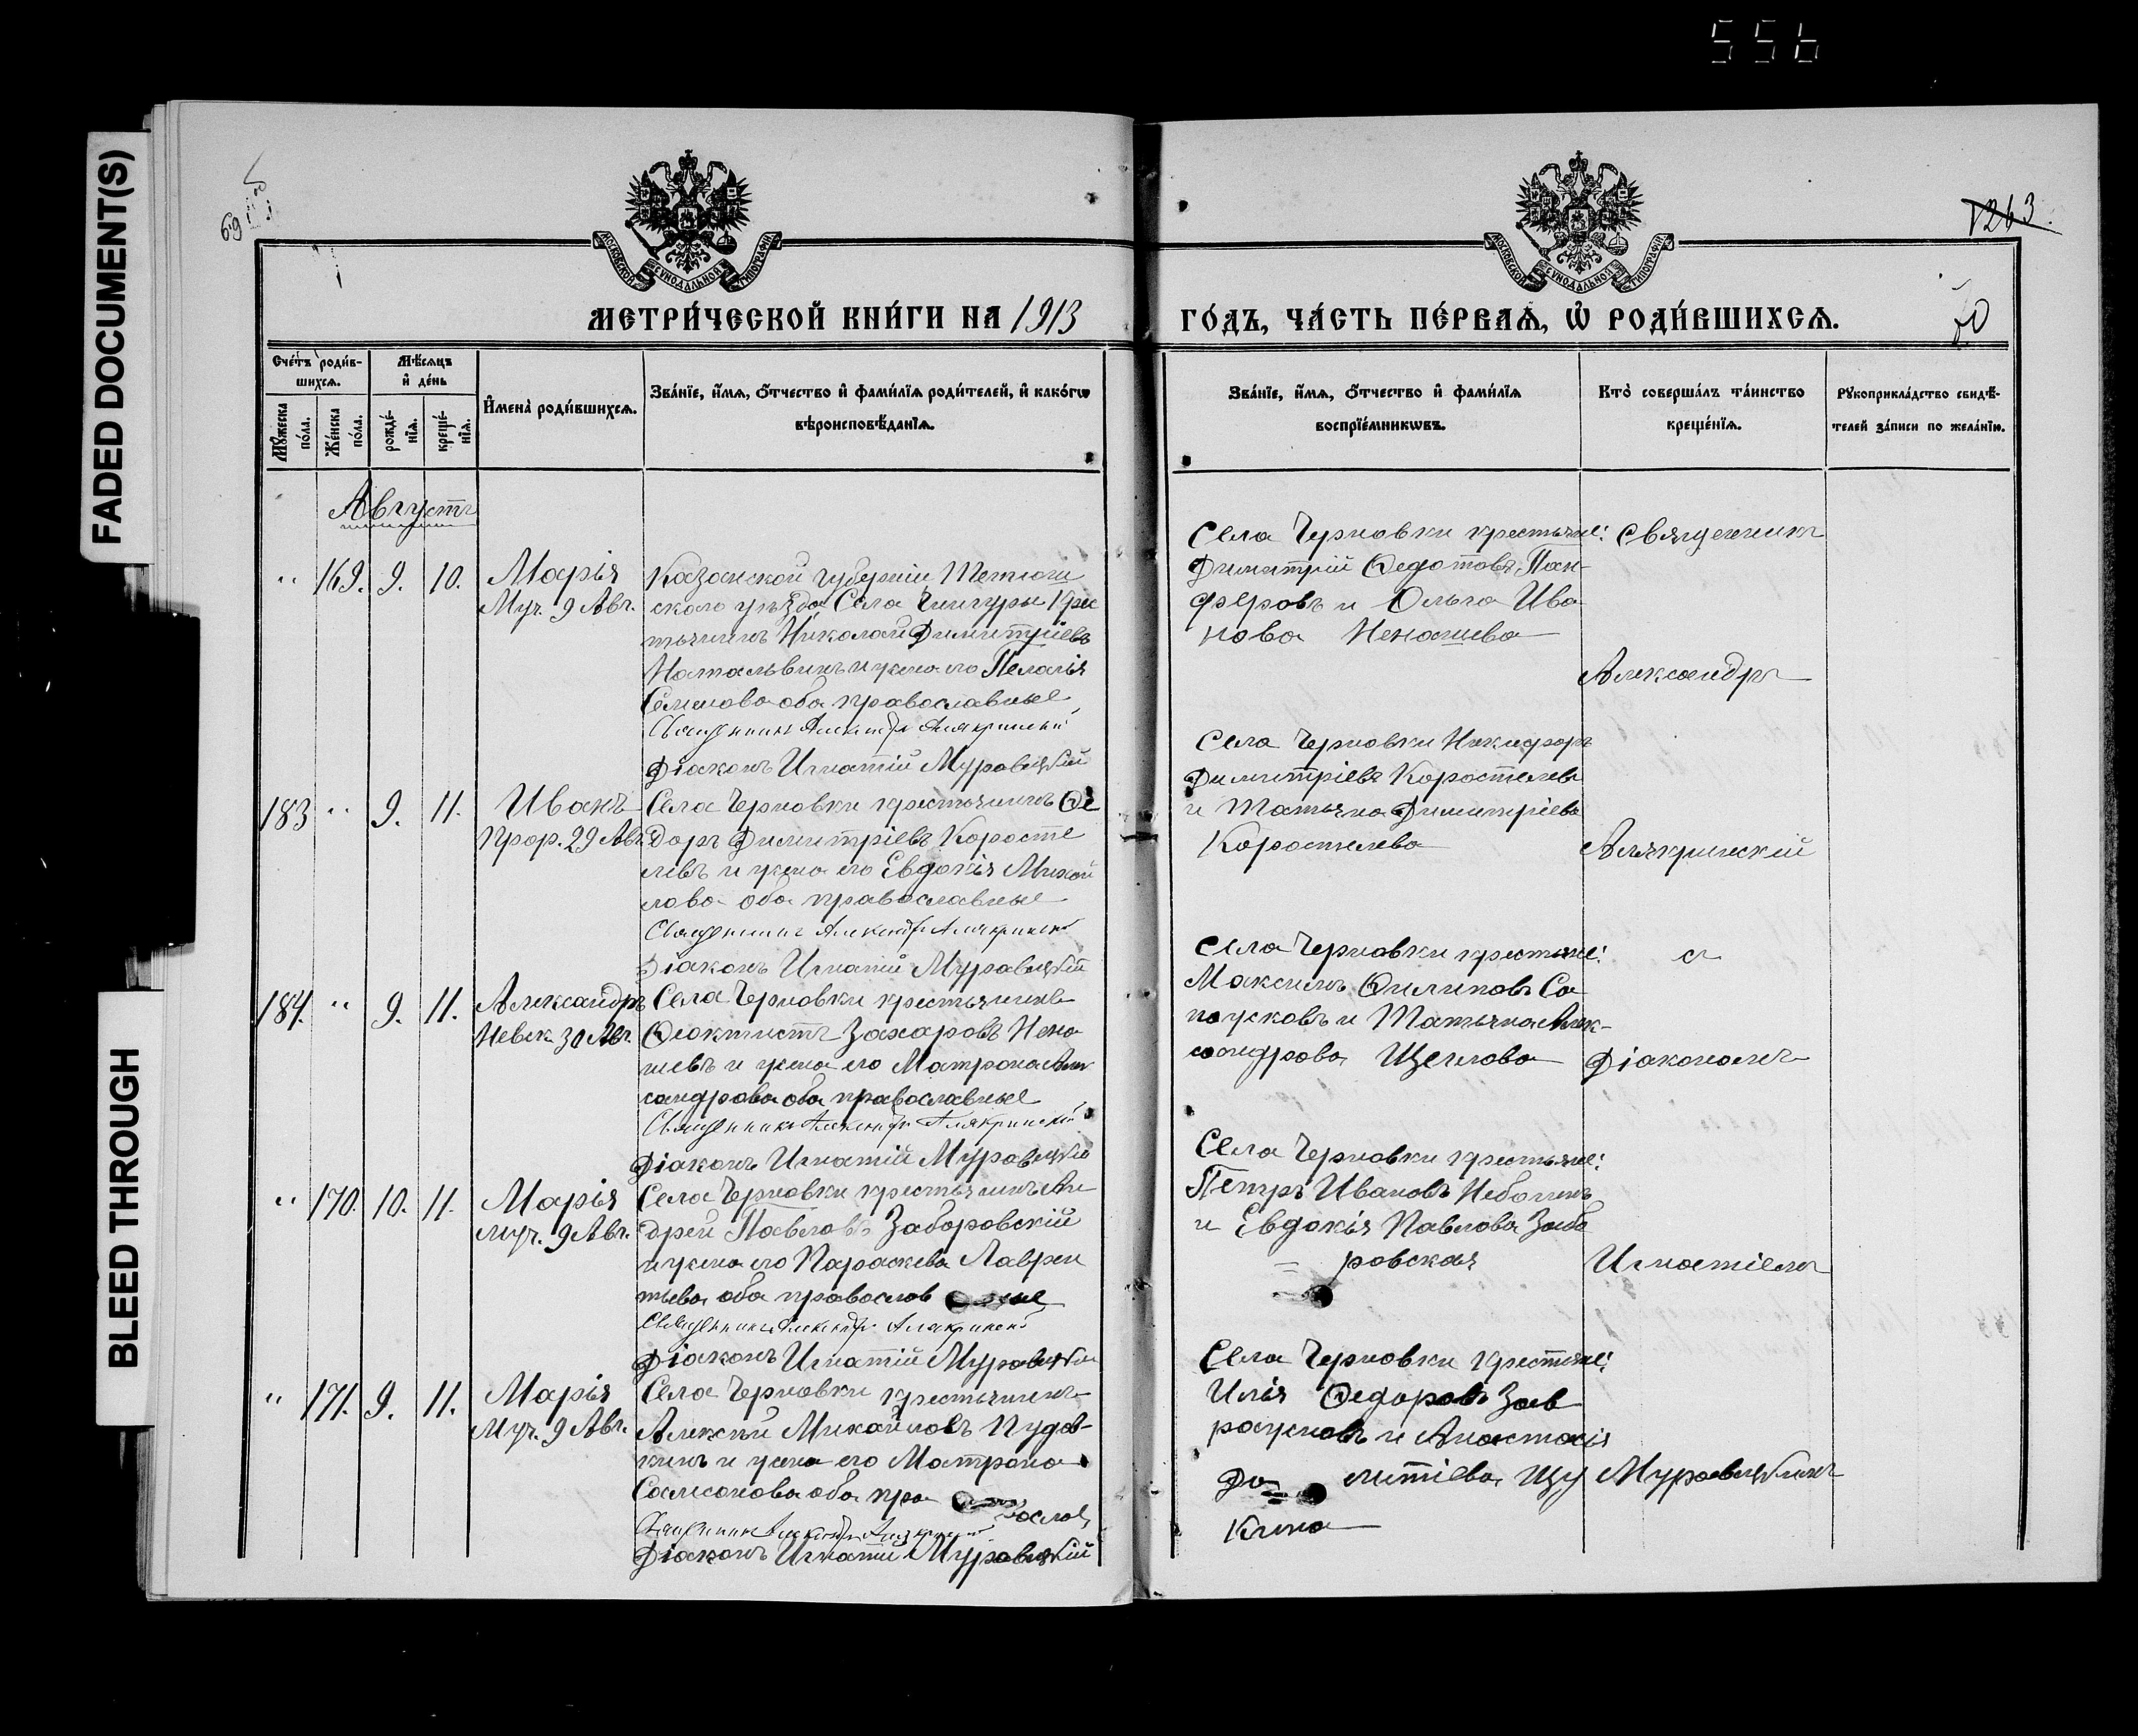 556
FADED DOCUMENT(S)
BLEED THROUGH
69
1263
70
МОСКОВСКОЙ СУНОДАЛЬНОЙ ТИПОГРАФІИ
МОСКОВСКОЙ СУНОДАЛЬНОЙ ТИПОГРАФІИ
МЕТРИ́ЧЕСКОЙ КНИ́ГИ НА 1913
ГО́ДЪ, ЧА́СТЬ ПЕ́РВАѦ, Ѡ РОДИ́ВШИХСѦ.
Сче́тъ роди́в-
шихсѧ.
Мѣ́сѧцъ
и҆ де́нь
Мꙋжеска
по́ла.
Же́нска
по́ла.
рожде́-
нїѧ.
креще́-
нїѧ.
И҆мена̀ роди́вшихсѧ.
Зва́нїе, и҆́мѧ, ѻ҆́тчество и҆ фами́лїѧ роди́телей, и҆ како́гѡ
вѣроисповѣ́данїѧ.
Зва́нїе, и҆́мѧ, ѻ҆́тчество и҆ фами́лїѧ
воспрїе́мникѡвъ.
Кто̀ соверша́лъ та́инство
креще́нїѧ.
Рꙋкоприкла́дство свидѣ́-
телей за́писи по жела́нїю.
Августъ
" 169. 9. 10.
Марія
Муч. 9 Авг.
Казанской губерніи Тетюш
скаго уѣзда Села Чинчуры Крес
тьянинъ Николай Димитріевъ
и жена его Пелагія
Семенова оба православные
Священникъ Александръ Алякринскій
Діаконъ Игнатій Муравицкій
Села Черновки крестьяне:
Димитрій Ѳедотовъ Пан-
феровъ и Ольга Ива
нова Ненашева
183 " 9. 11.
Иванъ
Прор. 29 Авг.
Села Черновки крестьянинъ Ѳе
доръ Димитріевъ Коросте
левъ и жена его Евдокія Михай
лова оба православные
Священникъ Александръ Алякринскій
Діаконъ Игнатій Муравицкій
Села Черновки Никифоръ
Димитріевъ Коростелевъ
и Татьяна Димитріева
Коростелева
184. " 9. 11.
Александръ
Невск. 30 Авг.
Села Черновки крестьянинъ
Ѳеоктистъ Захаровъ Нена
шевъ и жена его Матрона Алек
сандрова оба православные
Священникъ Александръ Алякринскій
Діаконъ Игнатій Муравицкій
Села Черновки крестьяне:
Максимъ Филиповъ Са
пожковъ и Татьяна Алек-
сандрова Щеглова
" 170. 10. 11.
Марія
муч. 9 Авг.
Села Черновки крестьянинъ Ан
дрей Павловъ Заборовскій
и жена его Параскева Лаврен
тьева оба православ ные
Священникъ Александръ Алякринскій
Діаконъ Игнатій Муравицкій
Села Черновки крестьяне:
Петръ Ивановъ
и Евдокія Павлова Забо
= ровская
" 171. 9. 11.
Марія
Муч. 9 Авг.
Села Черновки крестьянинъ
Алексѣй Михайловъ Пудов-
кинъ и жена его Матрона
Самсонова оба пра вослав
Священникъ Александръ Алякринскій
Діаконъ Игнатій Муравицкій
Села Черновки крестьяне:
Илія Ѳедоровъ Зав
ражновъ и Анастасія
Щу
кина
Священникъ
Александръ
Алякринскій
съ
Діакономъ
Игнатіемъ
Муравицкимъ